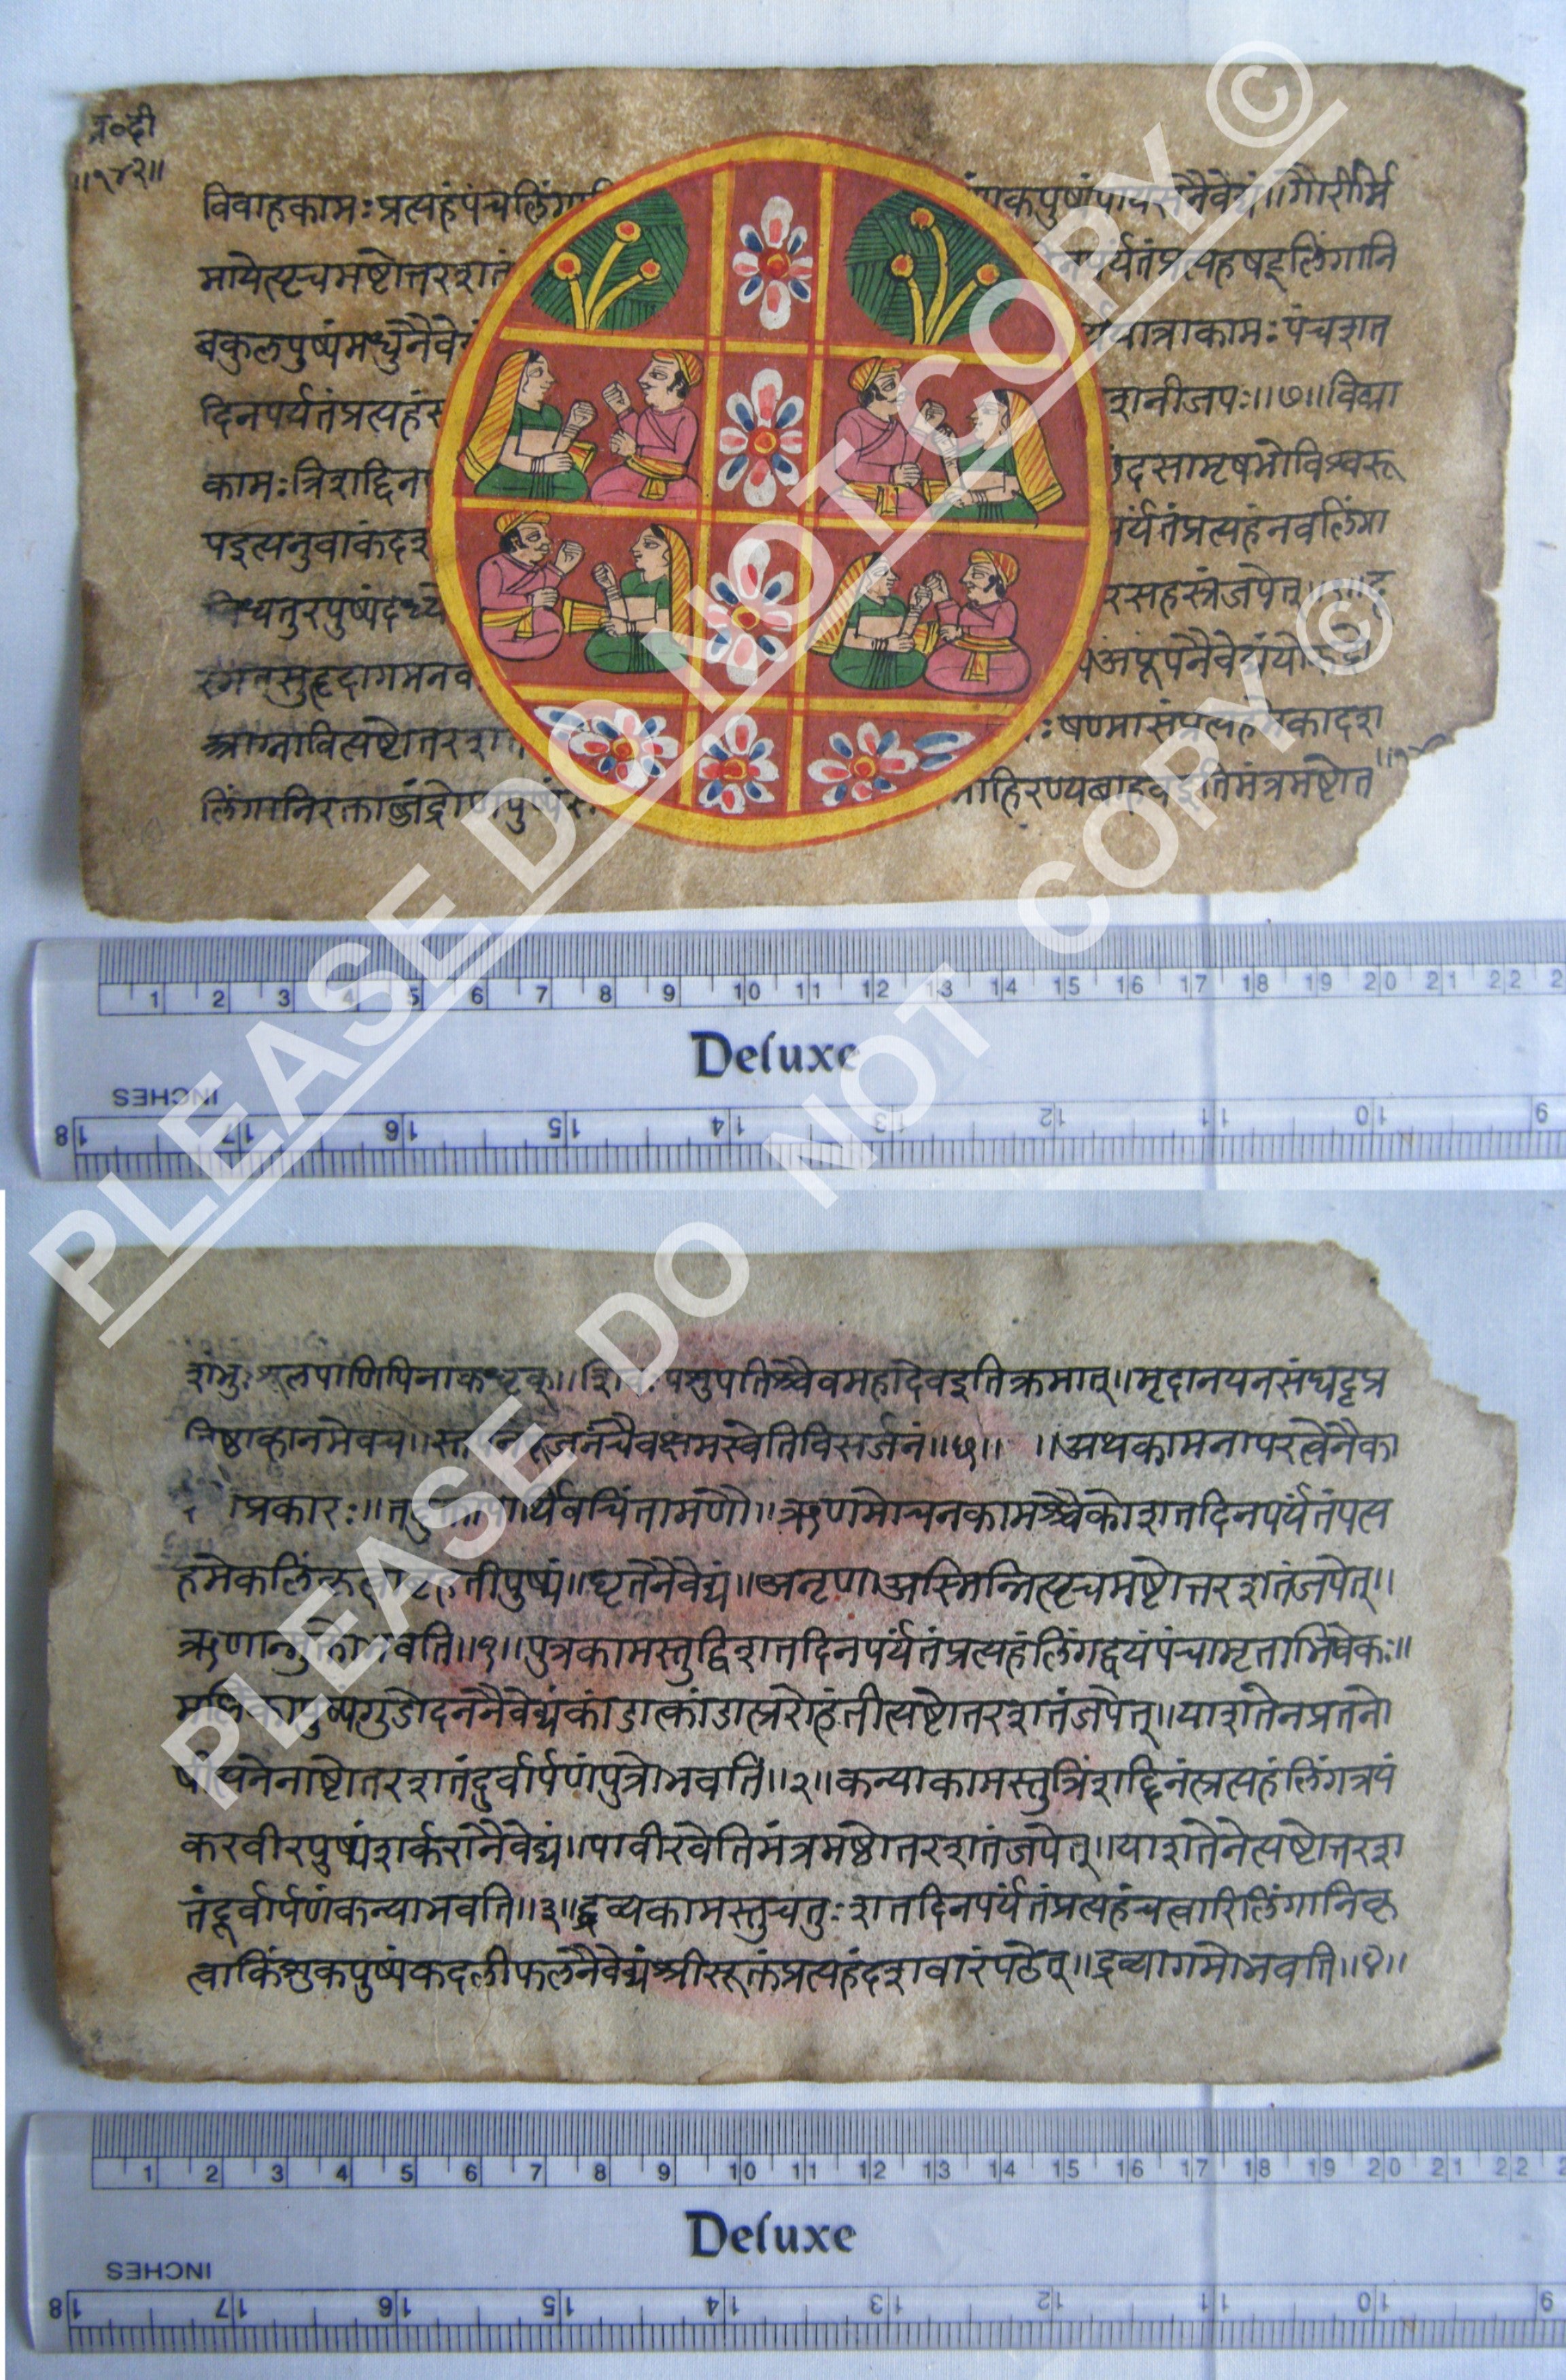 व्र०दी
॥१४२॥
विवाहकामःप्रत्यहंपंचलिंगा
पुष्पंपायसनैवेद्यं॥गौरीर्मि
मायेत्यृचमष्टोत्तरशतं
र्यंतंप्रत्यहंषड्लिंगानि
बकुलपुष्पंमधुनैवे
यात्राकामःपंचशत
दिनपर्यंतंप्रत्यहंस
शानीजपः॥७॥विद्या
कामःत्रिशद्दिन
दसामृषभोविश्वरू
पइत्यनुवाकंदश
र्यंतंप्रत्यहंनवलिंगा
रसहस्रंजपेत्
सुहृदागमन
अपूपनैवेद्यं
षण्मासंप्रत्यहमेकादश
लिंगानिरक्ताब्जंद्रोणपुष्पं
हिरण्यबाहवइतिमंत्रमष्टोत
PLEASE DO NOT COPY ©
PLEASE DO NOT COPY ©
1 2 3 4 5 6 7 8 9 10 11 12 13 14 15 16 17 18 19 20 21 22
Deluxe
INCHES
18 17 16 15 14 13 12 11 10 9
शूलपाणिपिनाकधृक्॥शिवःपशुपतिश्चैवमहादेवइतिक्रमात्॥मृदानयनसंघट्टप्र
तिष्ठाव्हानमेवच॥स्नपनंपूजनंचैवक्षमस्वेतिविसर्जनं॥५॥ ॥अथकामनापरत्वेनैका
प्रकारः॥चिंतामणौ॥ऋणमोचनकामश्चैकोशतदिनपर्यंतंपत्य
हमेकलिंगंकृत्वाबृहतीपुष्पं॥घृतनैवेद्यं॥अनृणाअस्मिन्नित्यृचमष्टोत्तरशतंजपेत्॥
ऋणान्मुक्तोभवति॥१॥पुत्रकामस्तुद्विशतदिनपर्यंतंप्रत्यहंलिंगद्वयंपंचामृताभिषेकः॥
मल्लिकापुष्पगुडोदननैवेद्यंकांडात्कांडात्प्ररोहंतीत्यष्टोतरशतंजपेत्॥याशतेनप्रतनो
षीत्यनेनाष्टोतरशतंदुर्वार्पणंपुत्रोभवति॥२॥कन्याकामस्तुत्रिंशद्दिनंप्रत्यहंलिंगत्रयं
करवीरपुष्पंशर्करानैवेद्यं॥पावीरवेतिमंत्रमष्ठोतरशतंजपेत्॥याशतेनेत्यष्टोत्तरश
तंदूर्वार्पणंकन्याभवति॥३॥द्रव्यकामस्तुचतुःशतदिनपर्यंतंप्रत्यहंचत्वारिलिंगानिकृ
त्वाकिंशुकपुष्पंकदलीफलनैवेद्यंश्रीसूक्तंप्रत्यहंदशवारंपठेत्॥द्रव्यागमोभवति॥४॥
1 2 3 4 5 6 7 8 9 10 11 12 13 14 15 16 17 18 19 20 21 22
Deluxe
INCHES
18 17 16 15 14 13 12 11 10 9